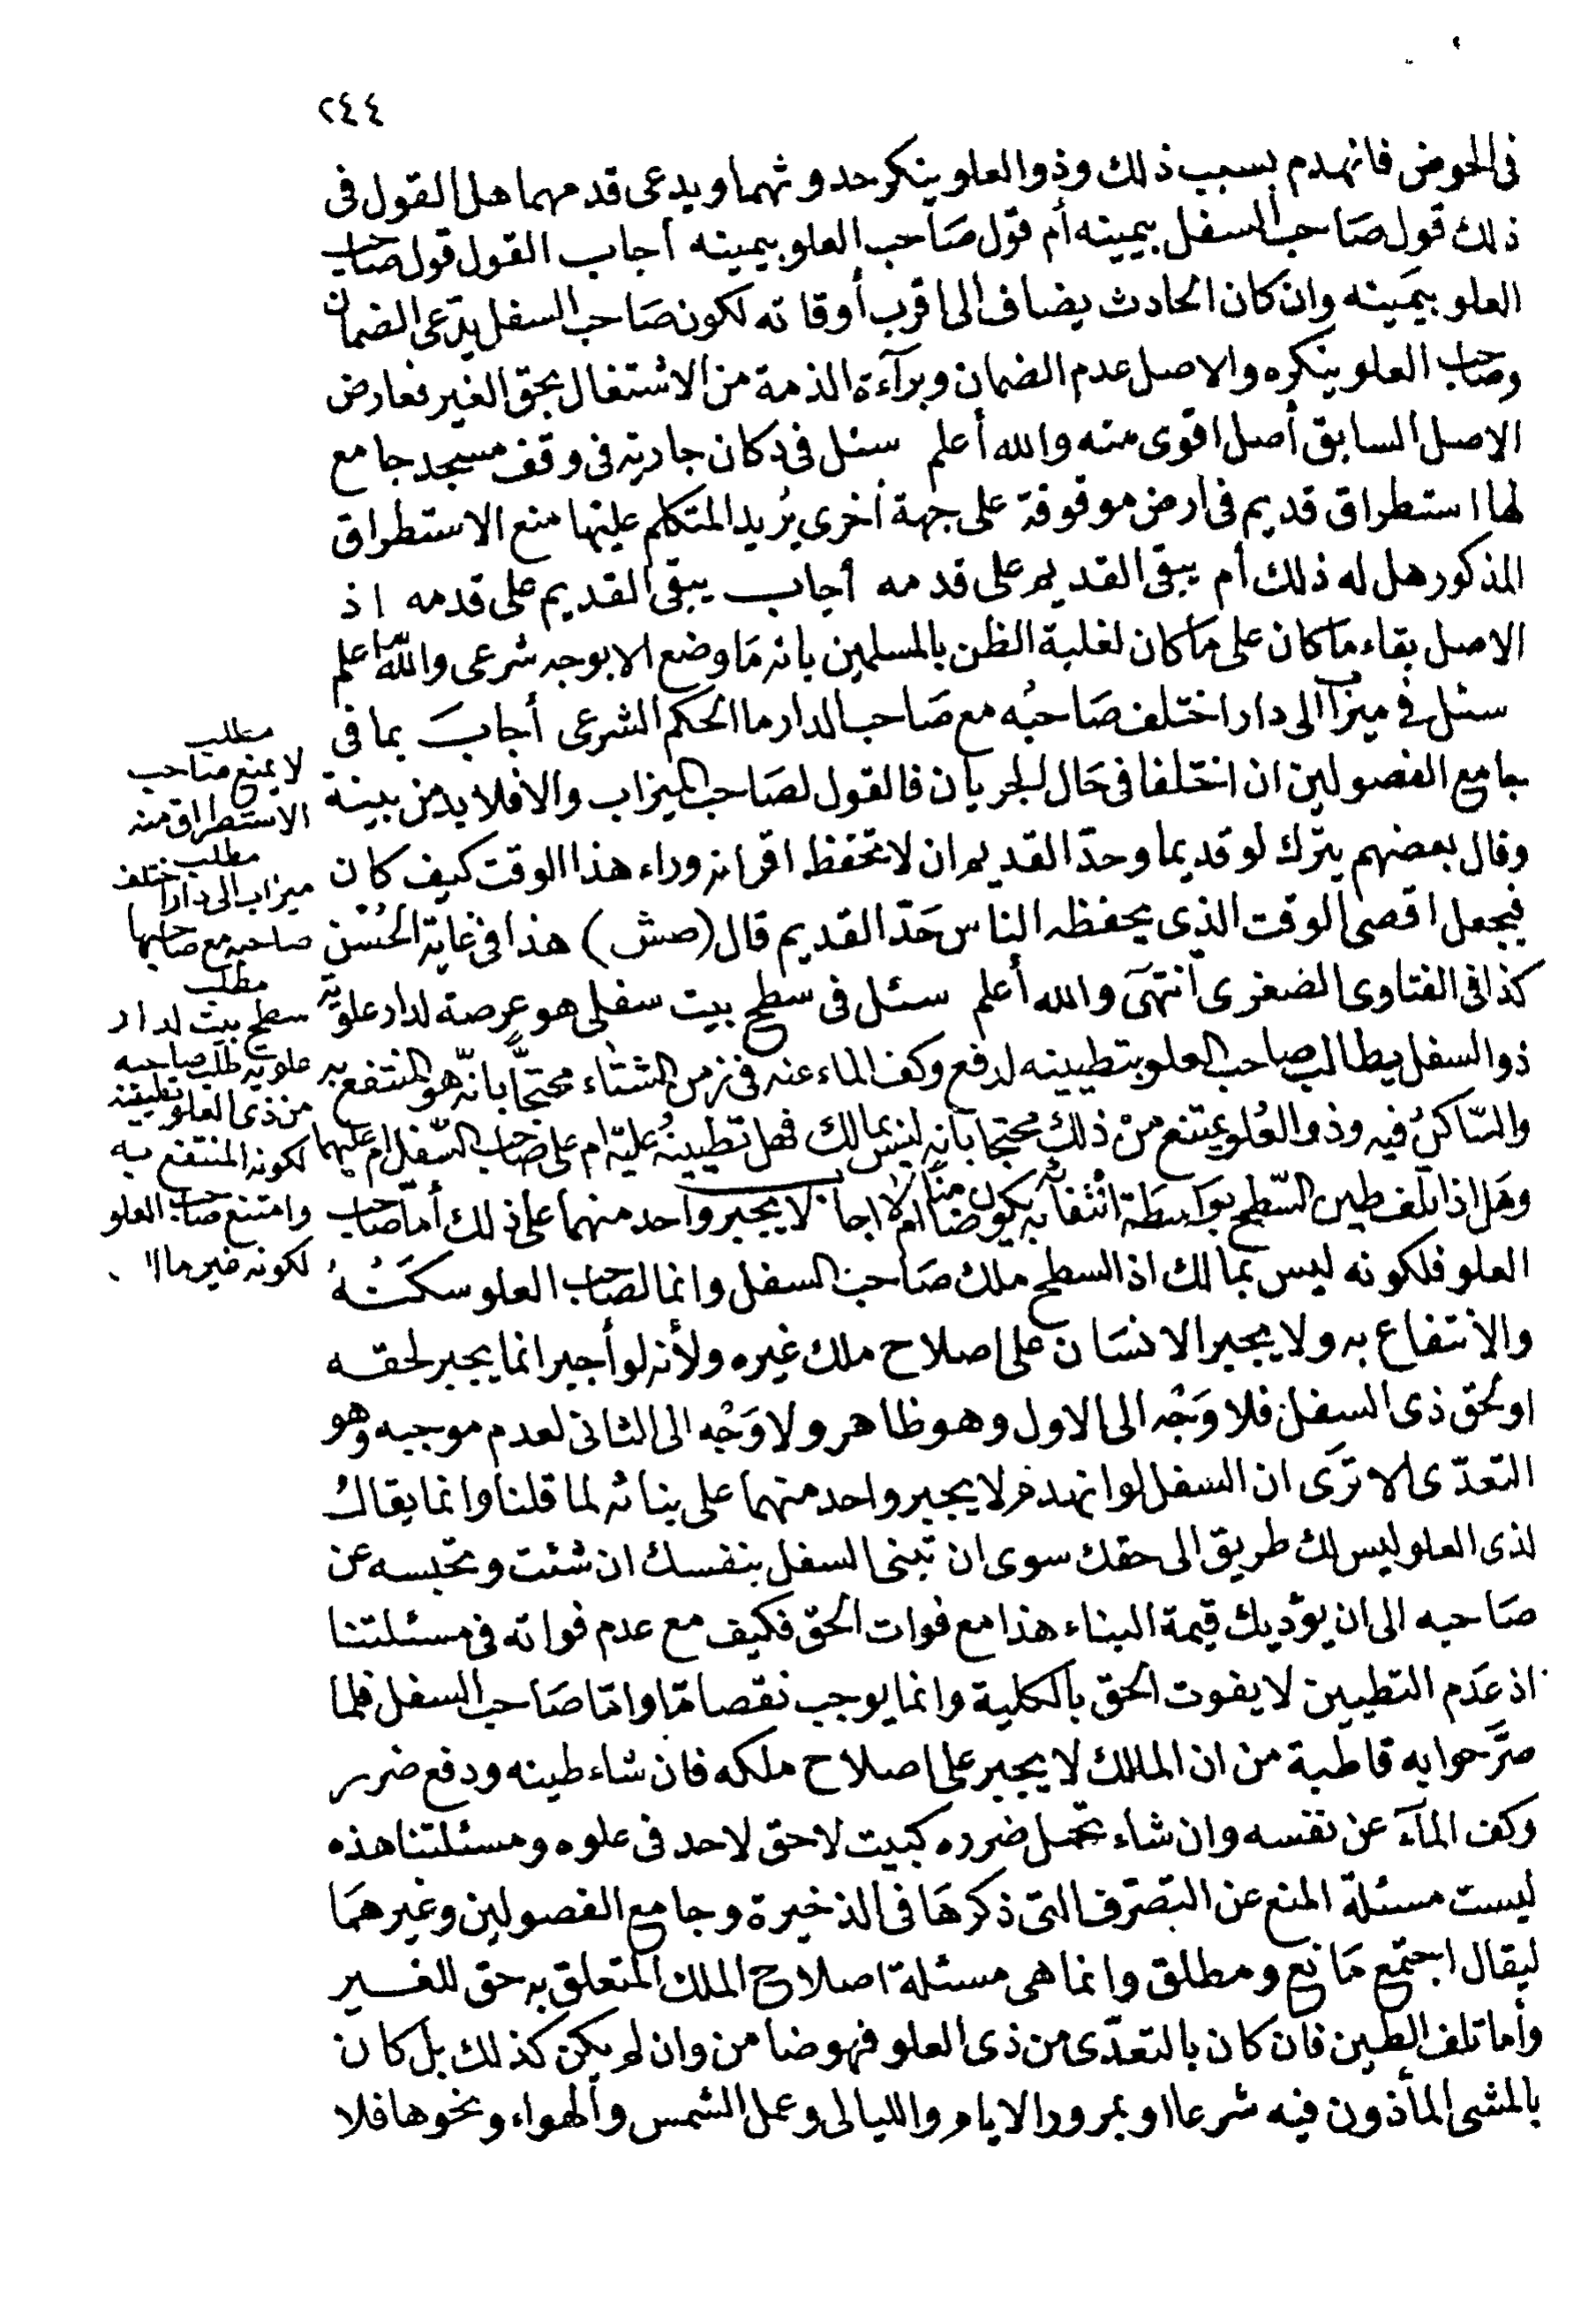 ٢٤٤
في الحوض فانهدم بسبب ذلك وذو العلو ينكر حدوثهما ويدعى قدمهما هل القول فى
ذلك قول صاحب السفل بيمينه أم قول صاحب العلو بيمينه أجاب القول قول صاحب
العلو بيمينه وان كان الحادث يضاف الى اقرب أوقاته لكون صاحب السفل يدّعى الضمان
وصاحب العلو ينكره والاصل عدم الضمان وبرآءة الذمة من الاشتغال بحق الغير فعارض
الاصل السابق أصل اقوى منه والله أعلم سئل فى دكان جارية فى وقف مسجد جامع
لها استطراق قديم فى ارض موقوفة على جهة أخرى يُريد المتكلم عليها منع الاستطراق
المذكور هل له ذلك أم يبقى القديم على قدمه أجاب يبقى القديم على قدمه اذ
الاصل بقاء ما كان على ما كان لغلبة الظن بالمسلمين بانه مَا وضع الا بوجه شرعى والله اعلم
سئل في ميزاب الى دار اختلف صَاحبُه مع صَاحب الدار ما الحكم الشرعى أجابَ بما فى
جامع الفصولين ان اختلفا فى حَال الجريان فالقول لصَاحب الميزاب والا فلا بد من بينة
وقال بعضهم يترك لو قديما وحدّ القديم ان لا تحفظ اقرانه وراء هذا الوقت كيف كان
فيجعل اقصى الوقت الذى يحفظه الناس حَدّ القديم قال (صش) هذا فى غاية الحُسْن
كذا فى الفتاوى الصغرى انتهَى والله أعلم سئل فى سطح بيت سفلى هو عرصة لدار علويّة
ذو السفل يطالب صاحب العلو بتطيينه لدفع وكف الماء عنه فى زمن الشتاء محتجًّا بانّه هو المنتفع به
والسّاكنُ فيه وذو العُلو يمتنع منْ ذلك محتجا بانه ليسَ بمالك فهل تطيينُه عليْه ام على صَاحب السّفل ام عليهما
وهَل اذا تلف طين السّطح بوَاسطة انْتفاعه به يكون ضامنًا له ام لا اجاب لا يجبر واحد منهما على ذلك أمّا صَاحب
العلو فلكونه ليس بمالك اذ السطح ملك صَاحب السفل وانما لصَاحب العلو سكَنُهُ
والانتفاع به ولا يجبر الانسَان على اصلاح ملك غيره ولأنه لو أجبر انما يجبر لحقه
او لحق ذى السفل فلا وَجْه الى الاول وهو ظاهر ولا وَجْه الى الثانى لعدم موجبه وهو
التعدّى الا ترَى ان السفل لو انهدم لا يجبر واحد منهما على بنائه لما قلنا وانما يقال
لذى العلو ليس لك طريق الى حقك سوى ان تبنى السفل بنفسك ان شئت وتحبسه عن
صَاحبه الى ان يؤديك قيمة البناء هذا مع فوات الحقّ فكيف مع عدم فواته فى مسئلتنا
اذ عَدَم التطيين لا يفوت الحق بالكلية وانما يوجب نقصا مّا وامّا صَاحب السفل فلما
صرَّحوا به قاطبة من ان المالك لا يجبر على اصلاح ملكه فان شاء طينه ودفع ضرر
وكف المآء عن نفسه وان شاء تحمل ضرره كبيت لا حق لاحد فى علوه ومسئلتنا هذه
ليست مسئلة المنع عن التصرّف التى ذكرهَا فى الذخيرة وجامع الفصولين وغيرهمَا
ليقال اجتمع مَانع ومطلق وانما هى مسئلة اصلاح الملك المتعلق به حق للغير
وأما تلف الطين فان كان بالتعدّى من ذى العلو فهو ضامن وان لم يكن كذلك بل كان
بالمشى المأذون فيه شرعا او بمرور الايام والليالى وعمل الشمس والهواء ونحوها فلا
مطلب
لا يمنع صاحب
الاستطراق منه
مطلب
ميزاب الى دار اختلف
صاحبه مع صاحبها
مطلب
سطح بيت لدار
علوية طلب صاحبه
من ذى العلو تطيينه
لكونه المنتفع به
وامتنع صاحب العلو
لكونه غير مالك